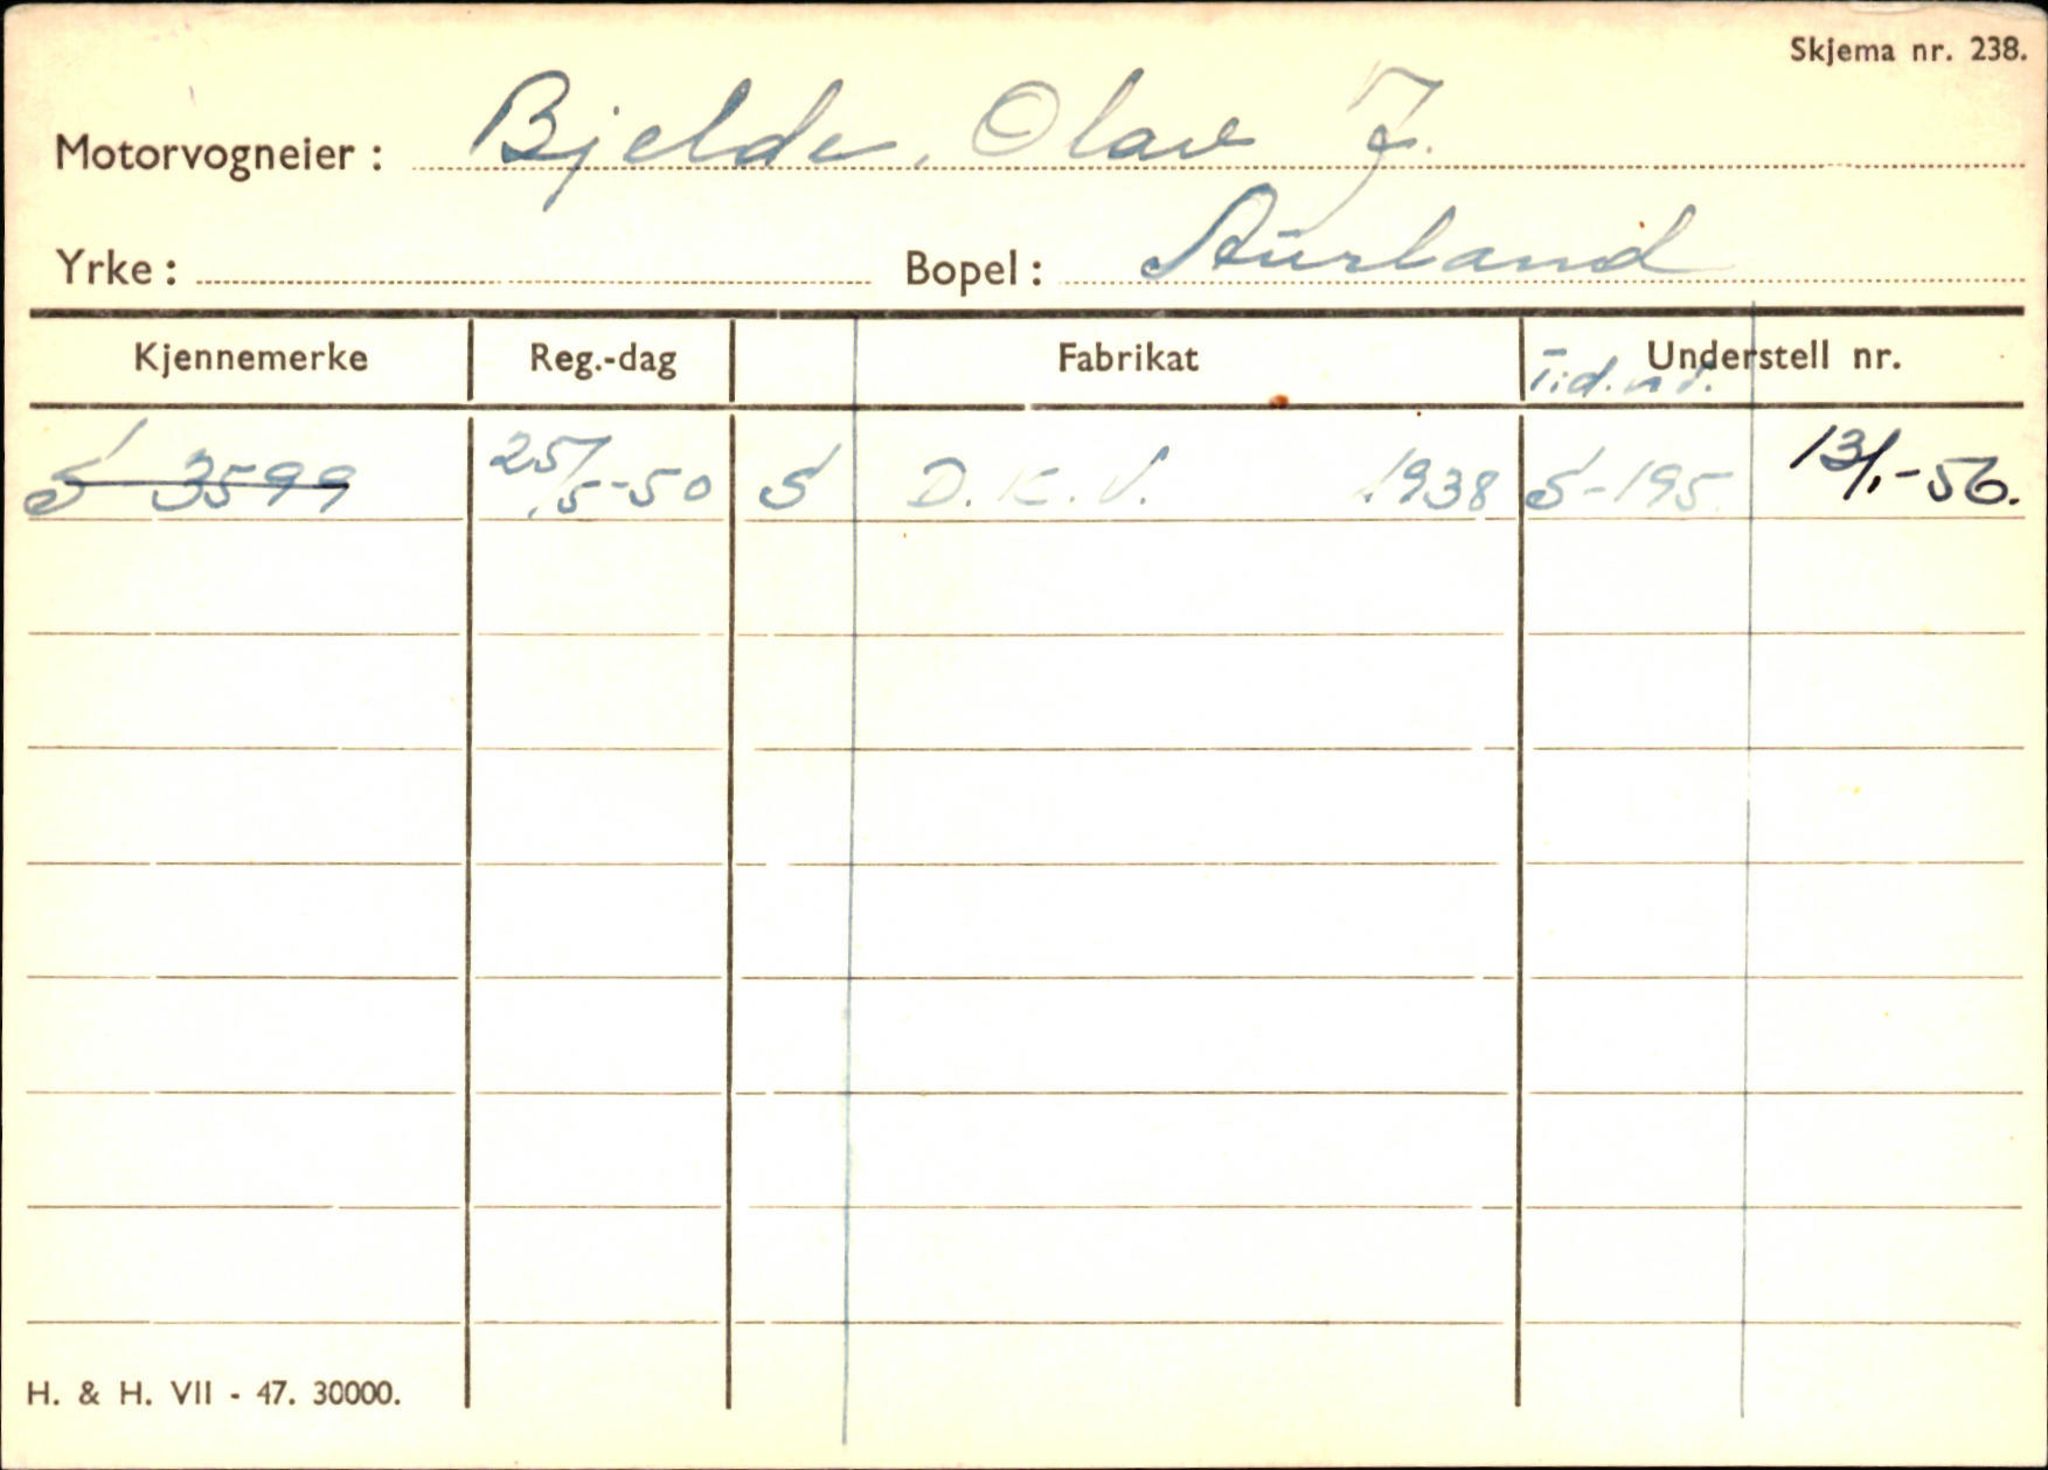 Skjema nr. 238.
Motorvogneier : Bjelde, Olav J.
Yrke : Bopel : Aurland
Kjennemerke Reg.-dag Fabrikat Understell nr.
Tid. nr.
S 3599 25/5-50 S D.K.V. 1938 S-195 13/1-56.
H. & H. VII - 47. 30000.